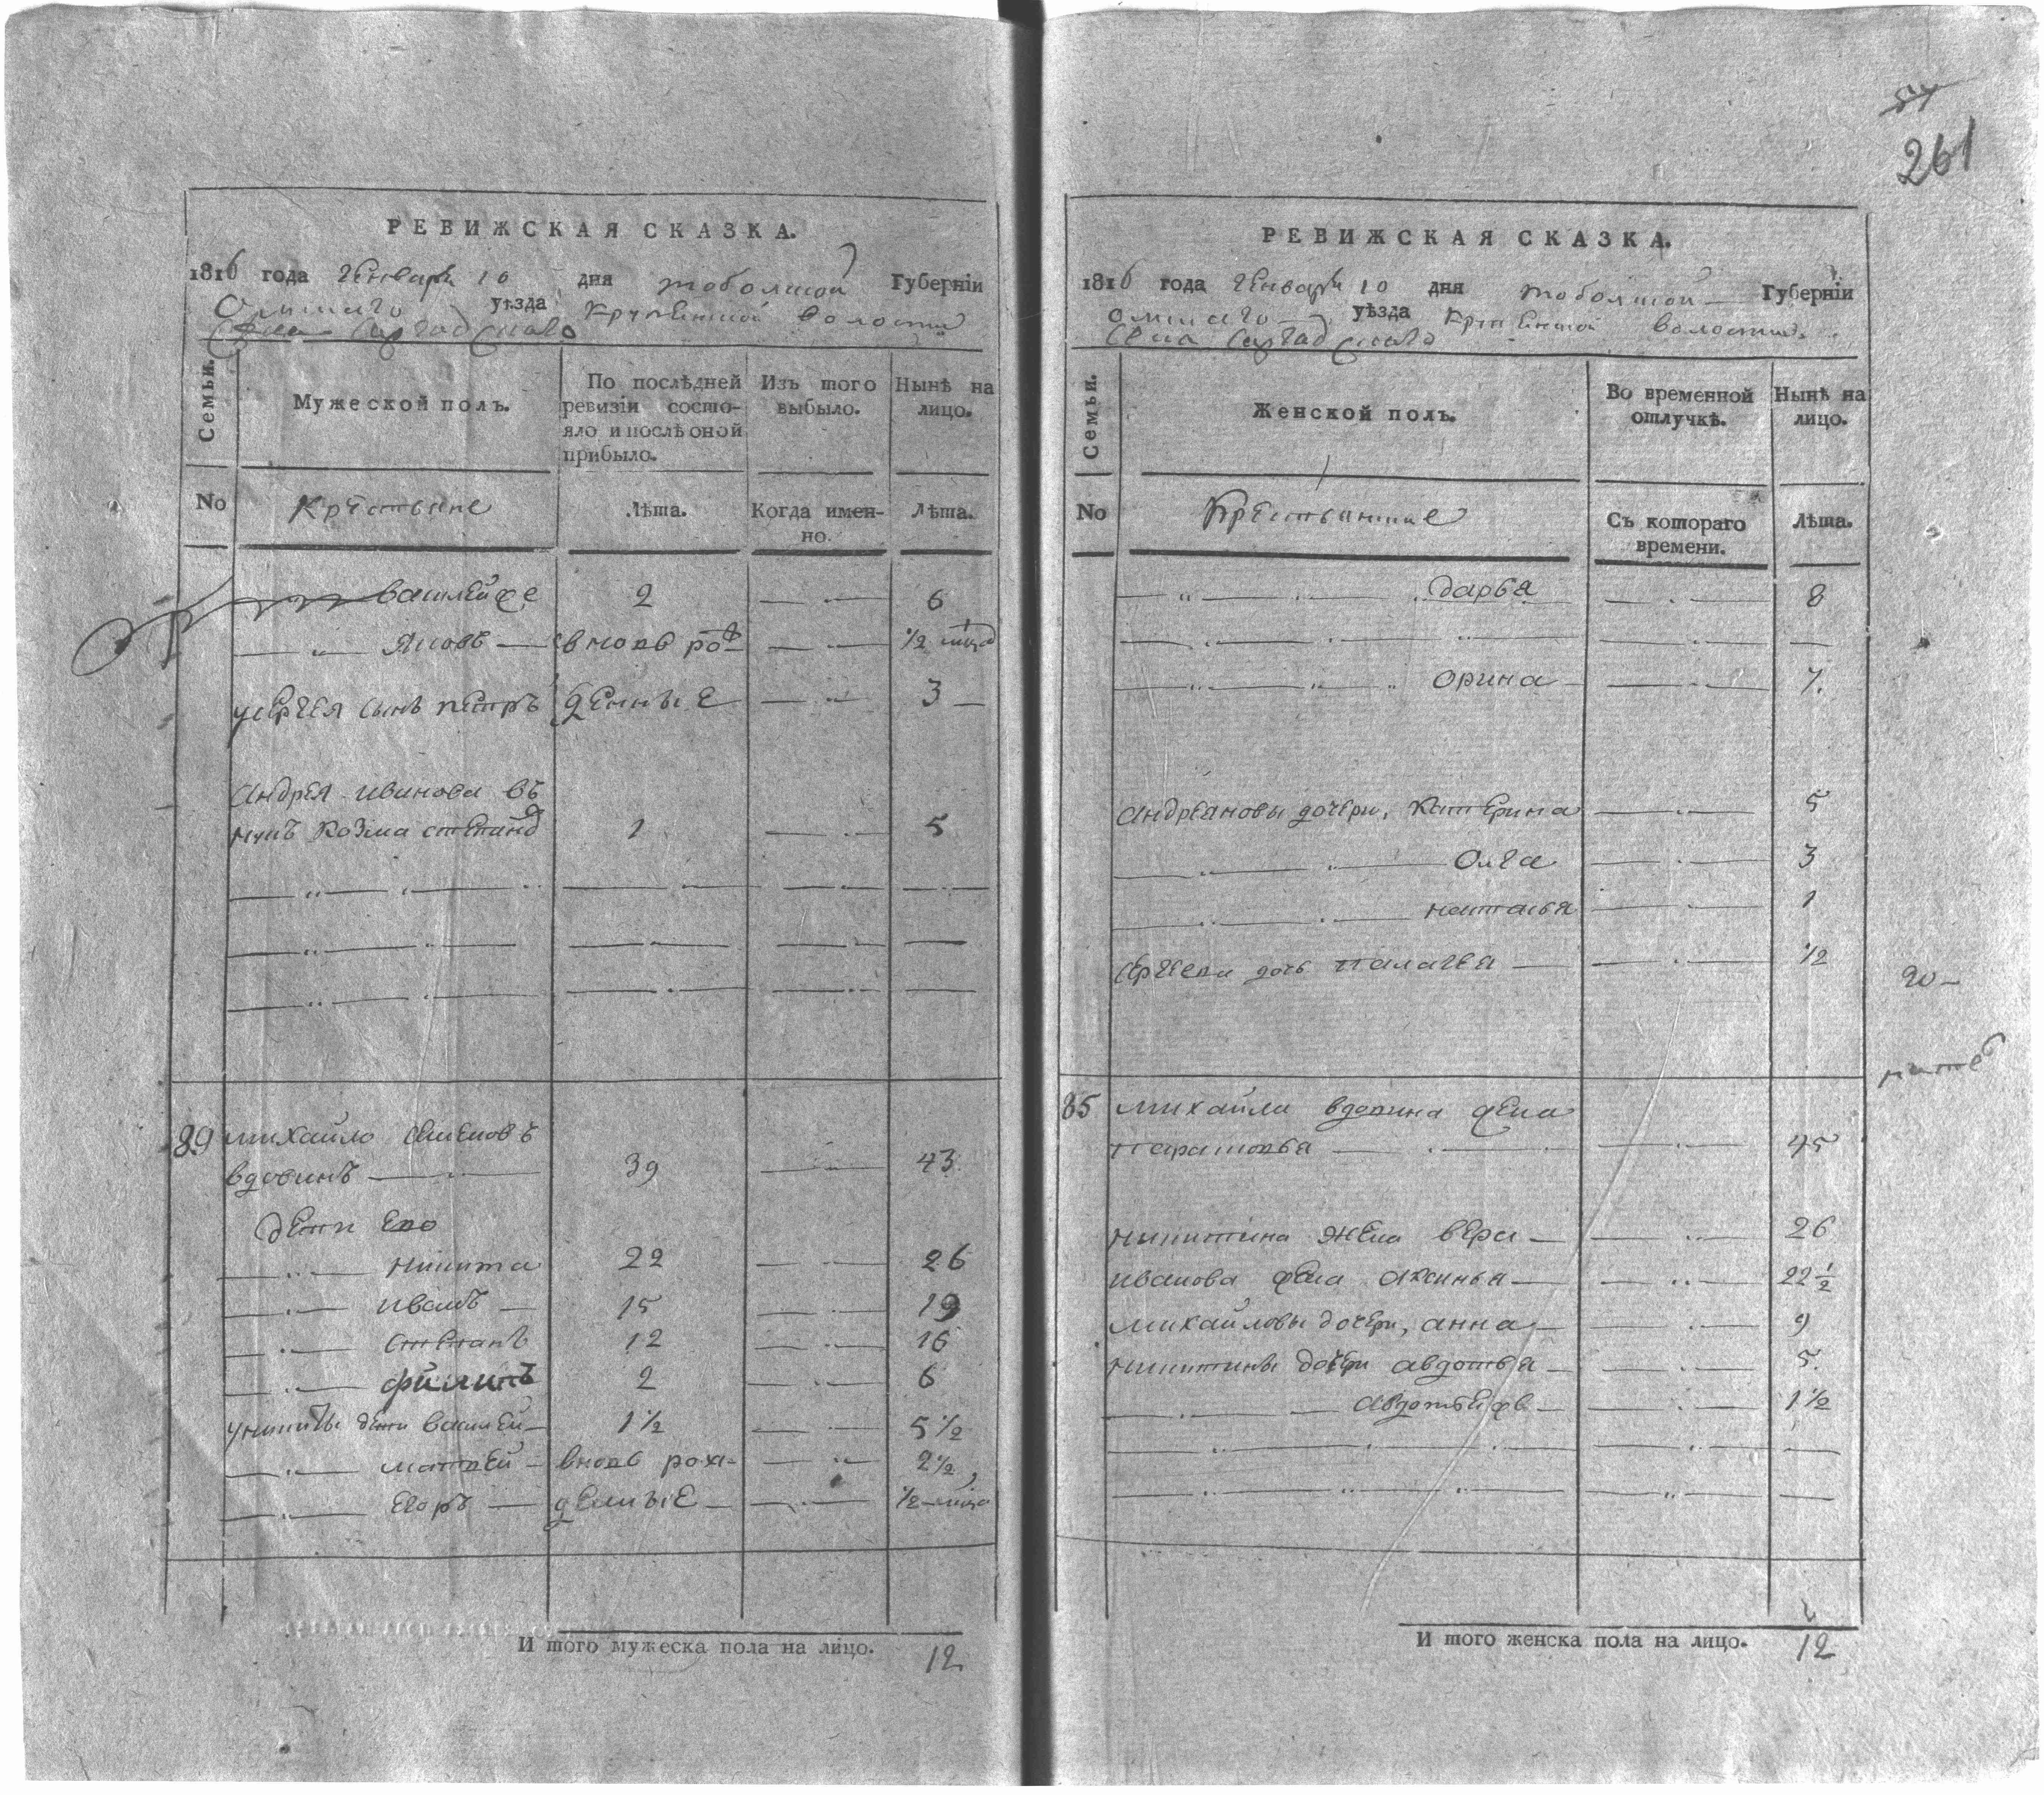 РЕВИЖСКАЯ СКАЗКА.
1816 года Генваря 10 дня тоболской Губернїи
Омскаго уѣзда Крупенской волости
Села Саргадскаго
Семьи.
Мужеской полъ.
По послѣдней ревизїи состо-
яло и послѣ оной
прибыло.
Изъ того
выбыло.
Нынѣ на
лицо.
No
Крестьяне
Лѣта.
Когда имен-
но.
Лѣта.
василейже 2 6
Яковъ вновь рож 1/2 мца
у сергея сынъ петръ денные 3
Андрея иванова въ
нукъ козма степанов 1 5
89 михайло семеновъ
вдовинъ 39 43
дети ево
никита 22 26
иванъ 15 19
степанъ 12 16
филипъ 2 6
у никиты дети василей 1 1/2 5 1/2
матвей вновь рожа- 2 1/2
егоръ денные 1/2 мца
И того мужеска пола на лицо. 12
261
РЕВИЖСКАЯ СКАЗКА.
1816 года Генваря 10 дня тоболской Губернїи
омскаго уѣзда Крупенской волости
Села Саргадскаго
Семьи.
Женской полъ.
Во временной
отлучкѣ.
Нынѣ на
лицо.
No
Крестьянкие
Съ котораго
времени.
Лѣта.
дарья 8
орина 7.
андреановы дочери, катерина 5
Олга 3
наталья 1
сергеева дочь палагея 1/2
85 михайла вдовина жена
парасковья 45
никитина жена вера 26
иванова жена аксинья 22 1/2
михайловы дочери, анна 9
никитины дочери авдотья 5.
авдотьяже 1 1/2
И того женска пола на лицо. 12